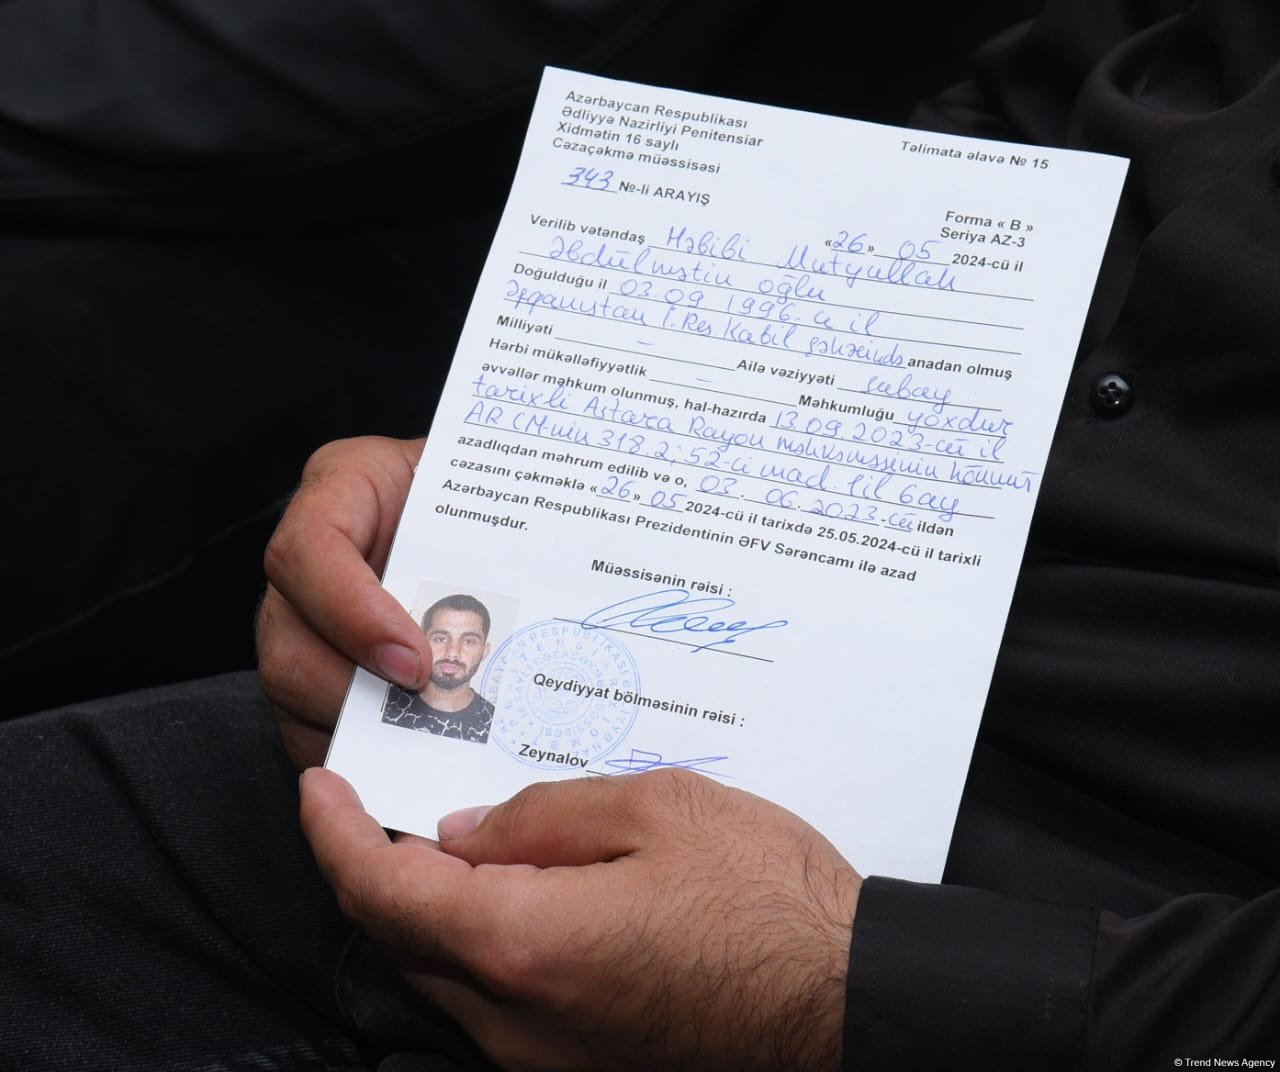 Azərbaycan Respublikası
Ədliyyə Nazirliyi Penitensiar
Xidmətin 16 saylı
Cəzaçəkmə müəssisəsi
Təlimata əlavə № 15
343 №-li ARAYIŞ
Forma « B »
Seriya AZ-3
«26» 05 2024-cü il
Verilib vətəndaş Həbibi Mutyullah
Əbdülmətin oğlu
Doğulduğu il 03.09.1996-cı il
Əfqanıstan İ.Res. Kabil şəhərində anadan olmuş
Milliyəti – Ailə vəziyyəti subay
Hərbi mükəlləfiyyətlik – Məhkumluğu yoxdur
əvvəllər məhkum olunmuş, hal-hazırda 13.09.2023-cü il
tarixli Astara Rayon məhkəməsinin hökmü
AR CM-nin 318.2; 52-ci mad. 1 il 6 ay
azadlıqdan məhrum edilib və o, 03.06.2023-cü ildən
cəzasını çəkməklə «26» 05 2024-cü il tarixdə 25.05.2024-cü il tarixli
Azərbaycan Respublikası Prezidentinin ƏFV Sərəncamı ilə azad
olunmuşdur.
Müəssisənin rəisi :
Qeydiyyat bölməsinin rəisi :
Zeynalov
© Trend News Agency